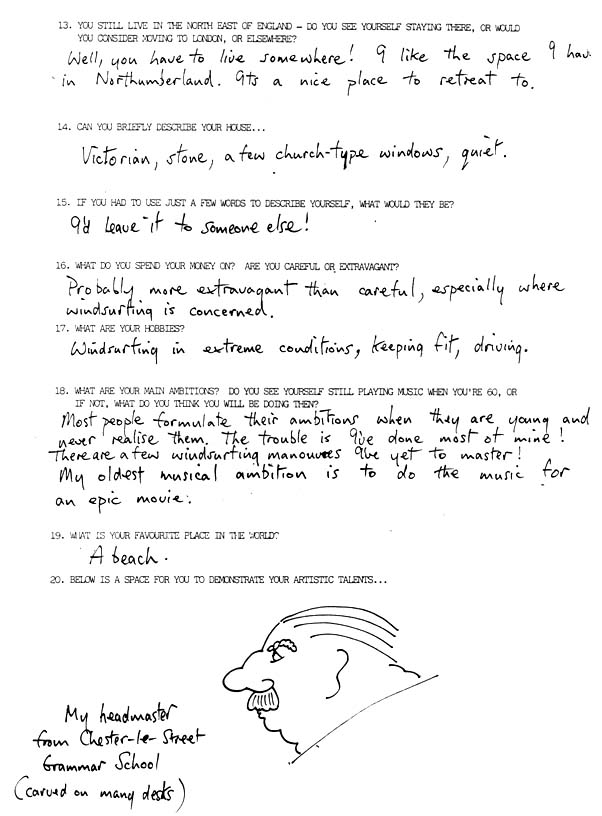 13. YOU STILL LIVE IN THE NORTH EAST OF ENGLAND - DO YOU SEE YOURSELF STAYING THERE, OR WOULD
YOU CONSIDER MOVING TO LONDON, OR ELSEWHERE?
Well, you have to live somewhere! I like the space I hav
in Northumberland. Its a nice place to retreat to.
14. CAN YOU BRIEFLY DESCRIBE YOUR HOUSE...
Victorian, stone, a few church-type windows, quiet.
15. IF YOU HAD TO USE JUST A FEW WORDS TO DESCRIBE YOURSELF, WHAT WOULD THEY BE?
I'd leave it to someone else!
16. WHAT DO YOU SPEND YOUR MONEY ON? ARE YOU CAREFUL OR EXTRAVAGANT?
Probably more extravagant than careful, especially where
windsurfing is concerned.
17. WHAT ARE YOUR HOBBIES?
Windsurfing in extreme conditions, keeping fit, driving.
18. WHAT ARE YOUR MAIN AMBITIONS? DO YOU SEE YOURSELF STILL PLAYING MUSIC WHEN YOU'RE 60, OR
IF NOT, WHAT DO YOU THINK YOU WILL BE DOING THEN?
Most people formulate their ambitions when they are young and
never realise them. The trouble is I've done most of mine!
There are a few windsurfing manouvres I've yet to master!
My oldest musical ambition is to do the music for
an epic movie.
19. WHAT IS YOUR FAVOURITE PLACE IN THE WORLD?
A beach.
20. BELOW IS A SPACE FOR YOU TO DEMONSTRATE YOUR ARTISTIC TALENTS...
My headmaster
from Chester-le-Street
Grammar School
(carved on many desks)